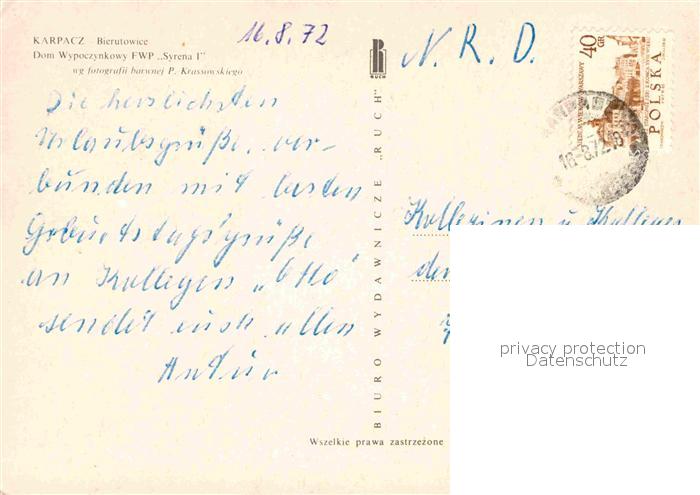 KARPACZ Bierutowice
Dom Wypoczynkowy FWP „Syrena I"
wg fotografii barwnej P. Krassowskiego
16.8.72
Die herzlichsten
Urlaubsgrüße, ver-
bunden mit besten
Geburtstagsgrüße
an Kollegen „Otto"
sendet euch allen
Artur
BIURO WYDAWNICZE „RUCH"
RUCH
N. R. D.
40
GR
POLSKA
18.-8.72
Kolleginen u. Kollegen
Wszelkie prawa zastrzeżone
privacy protection
Datenschutz